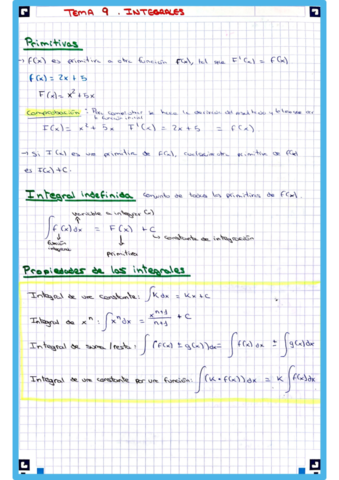 TEMA 9. INTEGRALES
Primitivas
→ F(x) es primitiva a otra función f(x), tal que F'(x) = f(x)
f(x) = 2x + 5
F(x) = x² + 5x
Comprobación: Para comprobar se hace la derivada del resultado y
la función inicial
F(x) = x² + 5x F'(x) = 2x + 5 = f(x)
→ Si F(x) es una primitiva de f(x), cualquier otra primitiva de f(x)
es F(x) + C.
Integral indefinida conjunto de todas las primitivas de f(x).
variable a integrar (x)
∫ f(x) dx = F(x) + C
↳ constante de integración
función
primitiva
Propiedades de las integrales
Integral de una constante: ∫ K dx = Kx + C
Integral de xⁿ: ∫ xⁿ dx = xⁿ⁺¹/n+1 + C
Integral de suma/resta: ∫ (f(x) ± g(x)) dx = ∫ f(x) dx ± ∫ g(x) dx
Integral de una constante por una función: ∫ (K · f(x)) dx = K ∫ f(x) dx